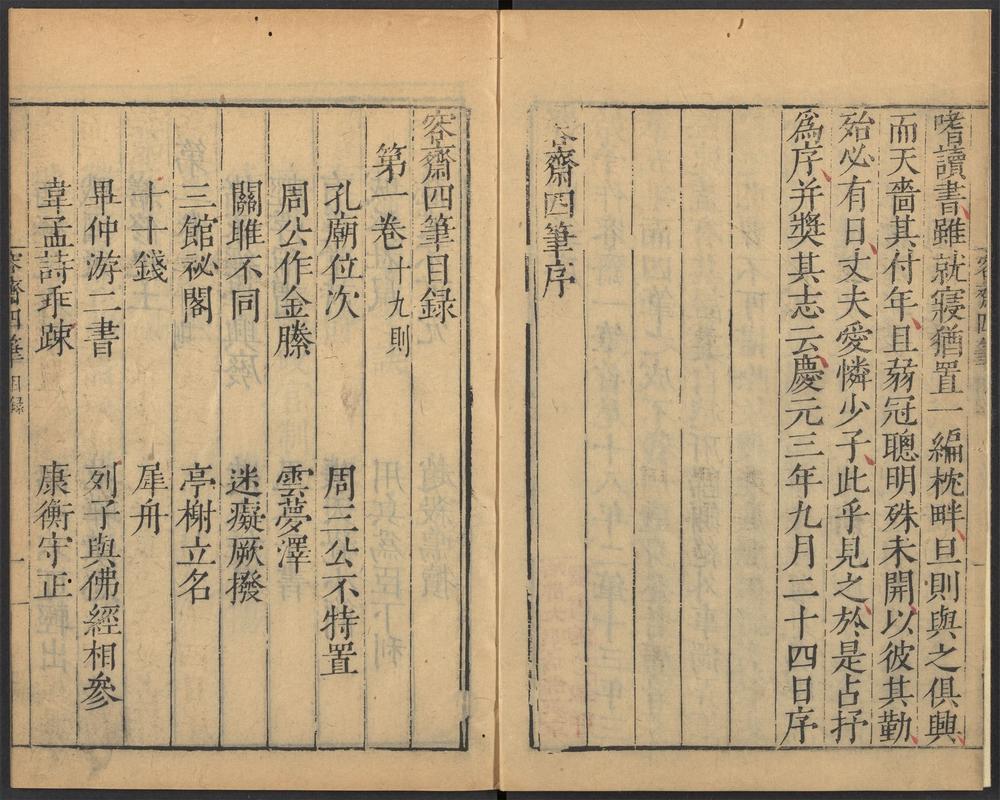 嗜讀書雖就寢猶置一編枕畔旦則與之俱興
而天嗇其付年且弱冠聰明殊未開以彼其勤
殆必有日丈夫愛憐少子此乎見之於是占抒
爲序并奬其志云慶元三年九月二十四日序
容齋四筆序
容齋四筆目録
第一卷十九則
孔廟位次　周三公不特置
周公作金縢　雲夢澤
關雎不同　迷癡厥撥
三館祕閣　亭榭立名
十十錢　犀舟
畢仲游二書　列子與佛經相參
韋孟詩乖踈　康衡守正
容齋四筆目録　一